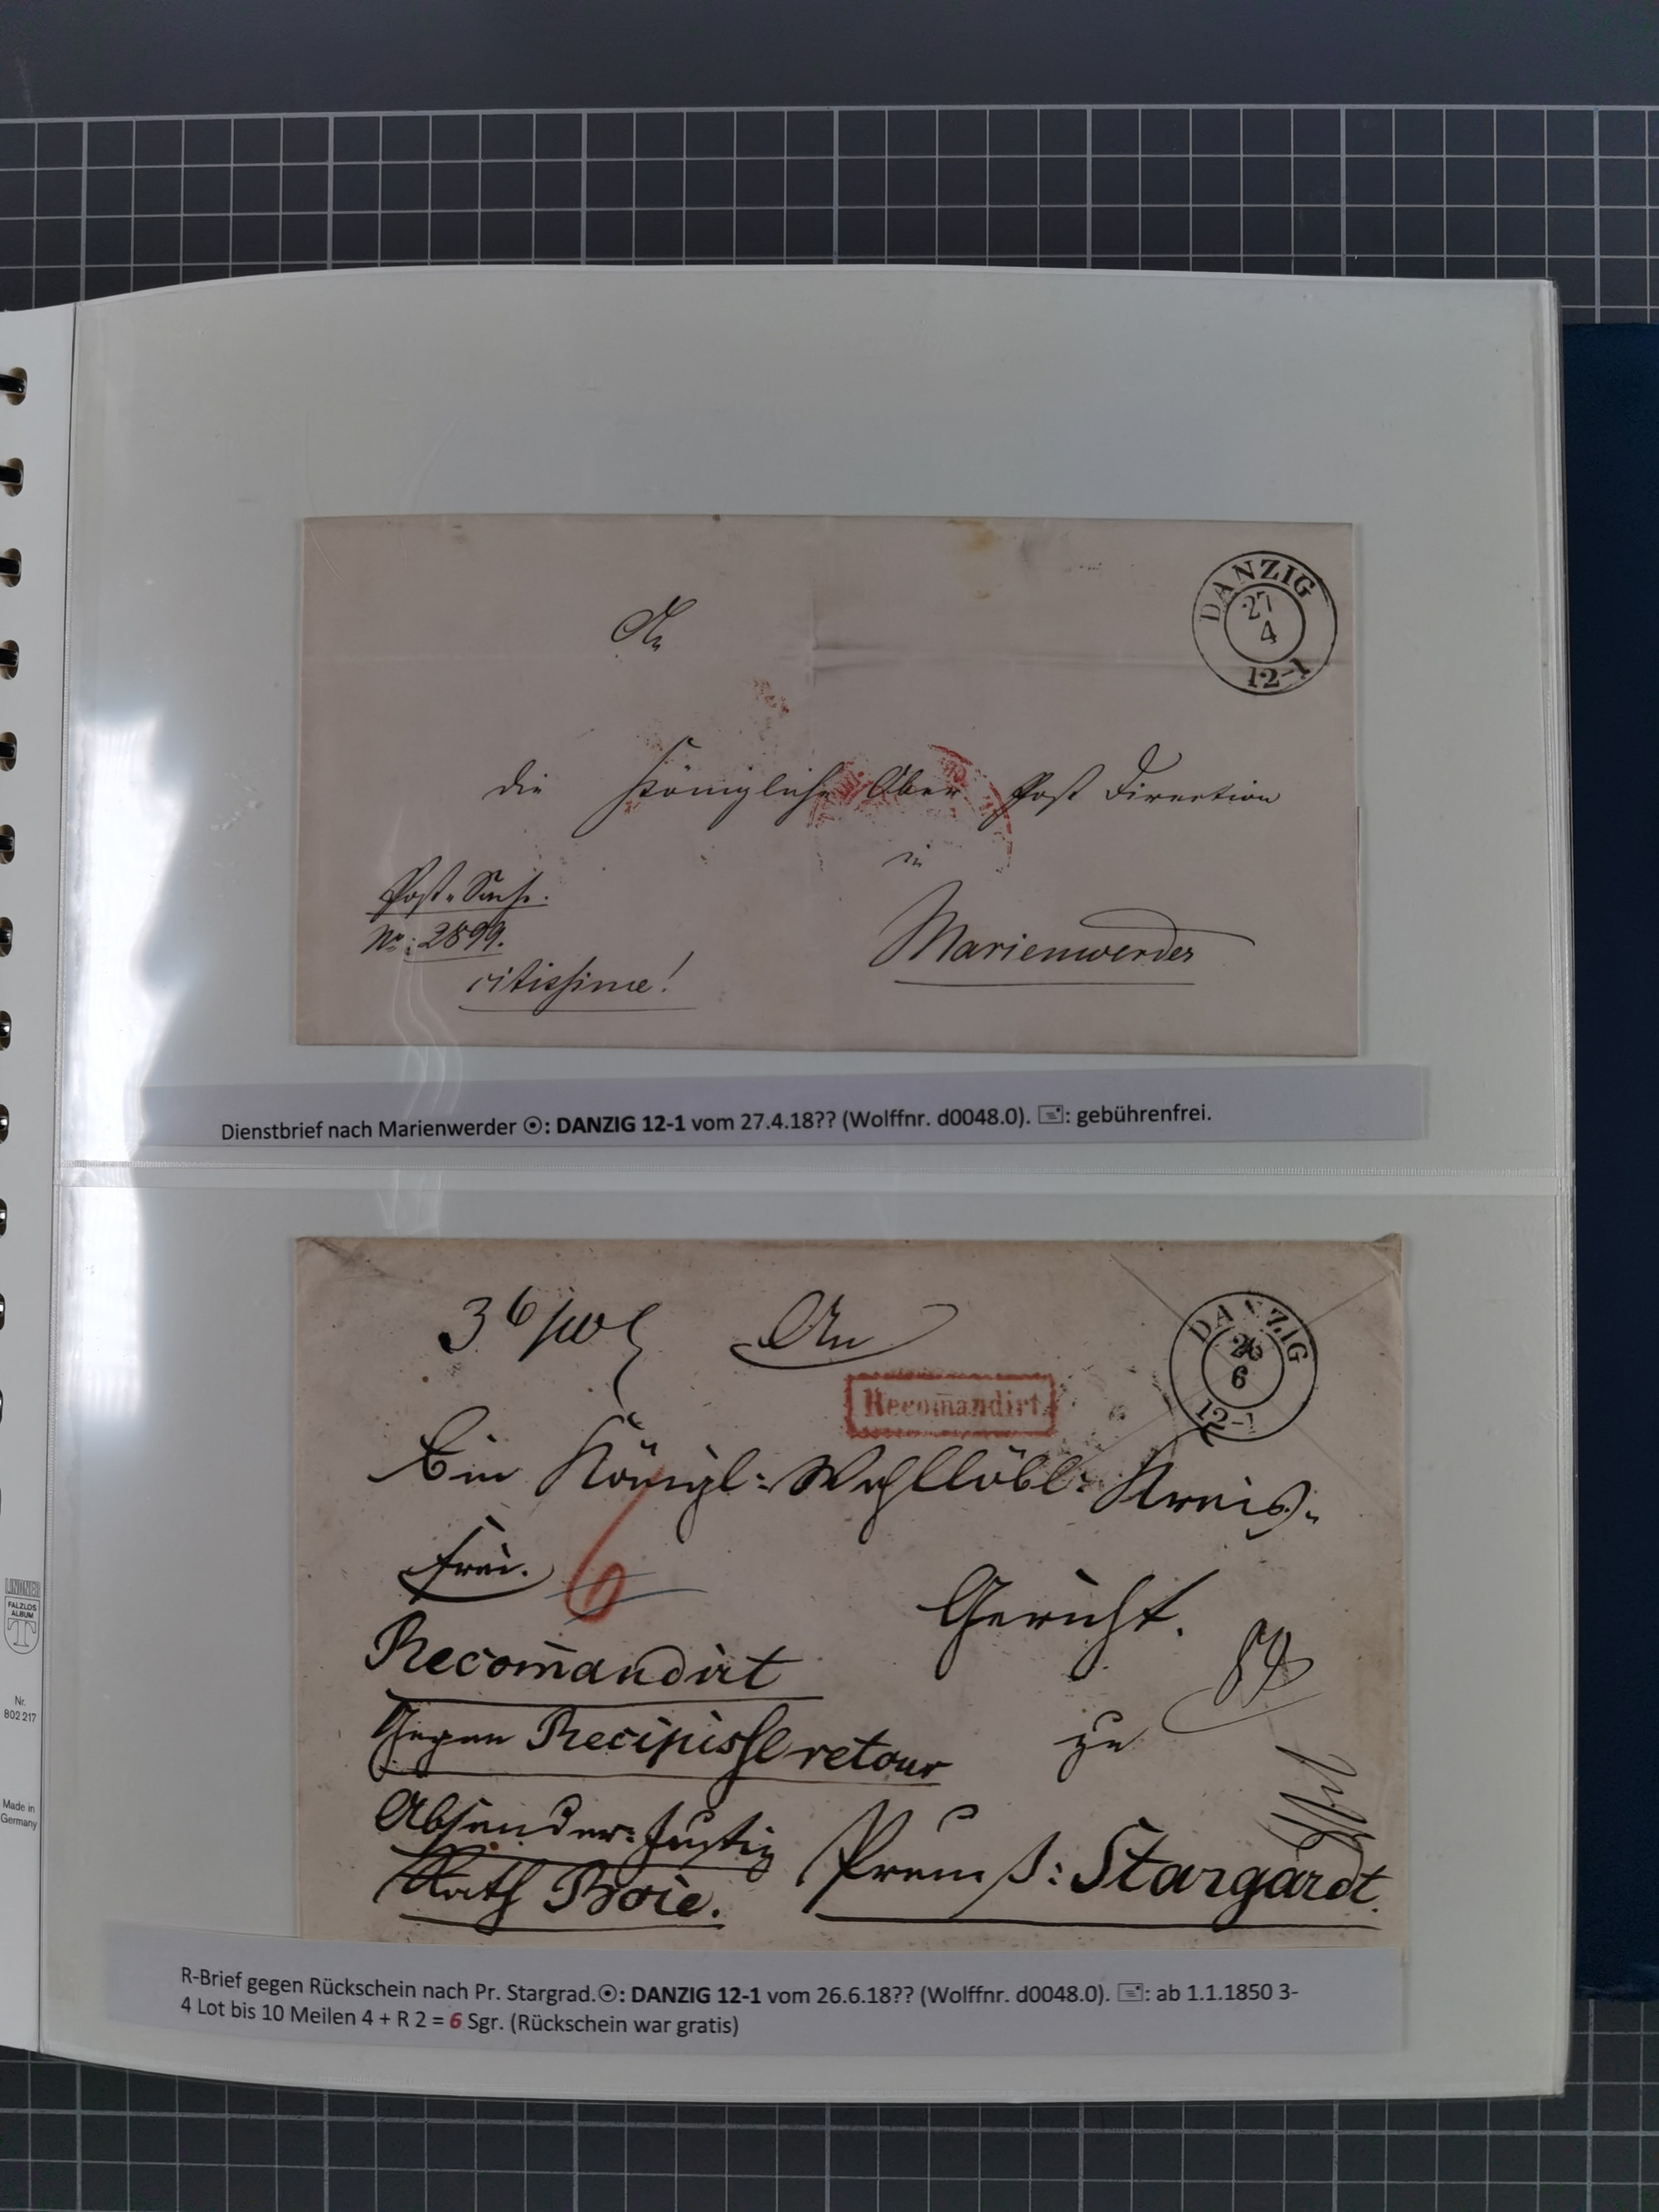 An
DANZIG
27
4
12-1
die Königliche Ober Post Direction
in
Post-Sache.
No: 2899.
Marienwerder
citissime!
Dienstbrief nach Marienwerder ⨀: DANZIG 12-1 vom 27.4.18?? (Wolffnr. d0048.0). : gebührenfrei.
36
An
DANZIG
26
6
12-1
Recom̄andirt
Ein Königl: Wohllöbl: Kreis-
frei. 6
Gericht.
Recom̄andirt
gegen Recipisse retour
zu
Absender: Justiz
Rath Boie.
Preuß: Stargardt.
R-Brief gegen Rückschein nach Pr. Stargrad.⨀: DANZIG 12-1 vom 26.6.18?? (Wolffnr. d0048.0). : ab 1.1.1850 3-
4 Lot bis 10 Meilen 4 + R 2 = 6 Sgr. (Rückschein war gratis)
LINDNER
FALZLOS
ALBUM
T
Nr.
802 217
Made in
Germany